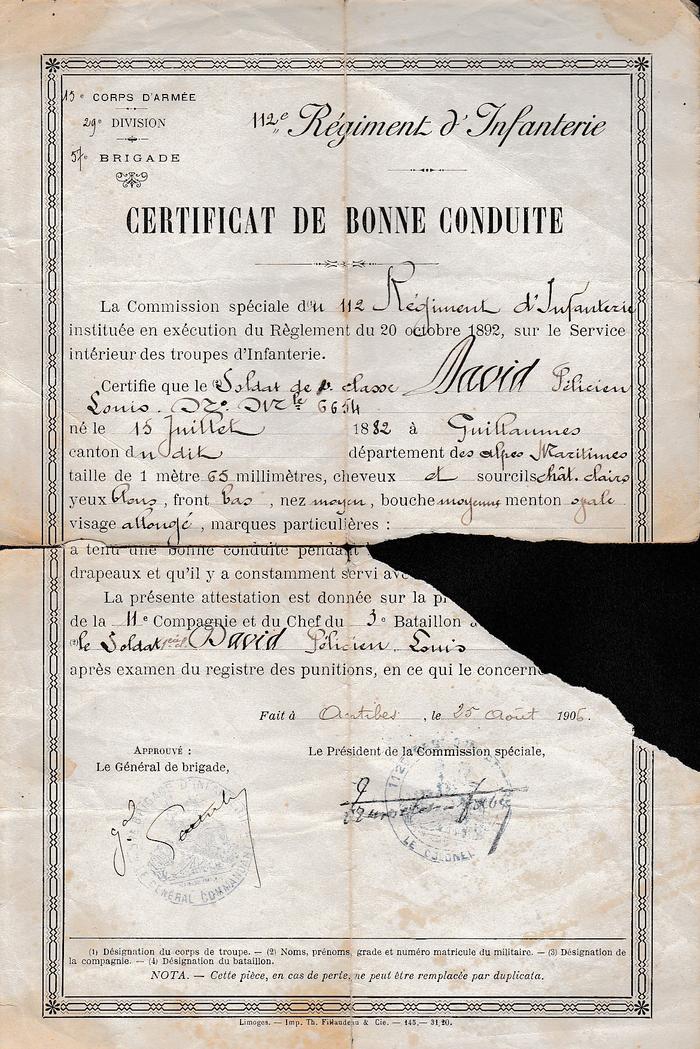 15e CORPS D'ARMÉE
29e DIVISION
57e BRIGADE
112e Régiment d'Infanterie
CERTIFICAT DE BONNE CONDUITE
La Commission spéciale du 112 Régiment d'Infanterie
instituée en exécution du Règlement du 20 octobre 1892, sur le Service
intérieur des troupes d'Infanterie.
Certifie que le Soldat de classe David Félicien
Louis. No Mle 6654
né le 15 Juillet 1882 à Guillaumes
canton du dit département des alpes Maritimes
taille de 1 mètre 65 millimètres, cheveux et sourcils chât. clairs
yeux bleus, front bas, nez moyen, bouche moyenne menton ovale
visage allongé, marques particulières :
a tenu une bonne conduite pendant
drapeaux et qu'il y a constamment servi avec
La présente attestation est donnée sur la
de la 11e Compagnie et du Chef du 3e Bataillon
le Soldat David Félicien Louis
après examen du registre des punitions, en ce qui le concerne
Fait à Antibes, le 25 Août 1906.
APPROUVÉ :
Le Général de brigade,
Le Président de la Commission spéciale,
LE COLONEL
GÉNÉRAL COMMANDANT
(1) Désignation du corps de troupe. — (2) Noms, prénoms, grade et numéro matricule du militaire. — (3) Désignation de
la compagnie. — (4) Désignation du bataillon.
NOTA. — Cette pièce, en cas de perte, ne peut être remplacée par duplicata.
Limoges. — Imp. Th. & Cie. — 145. — 31.20.